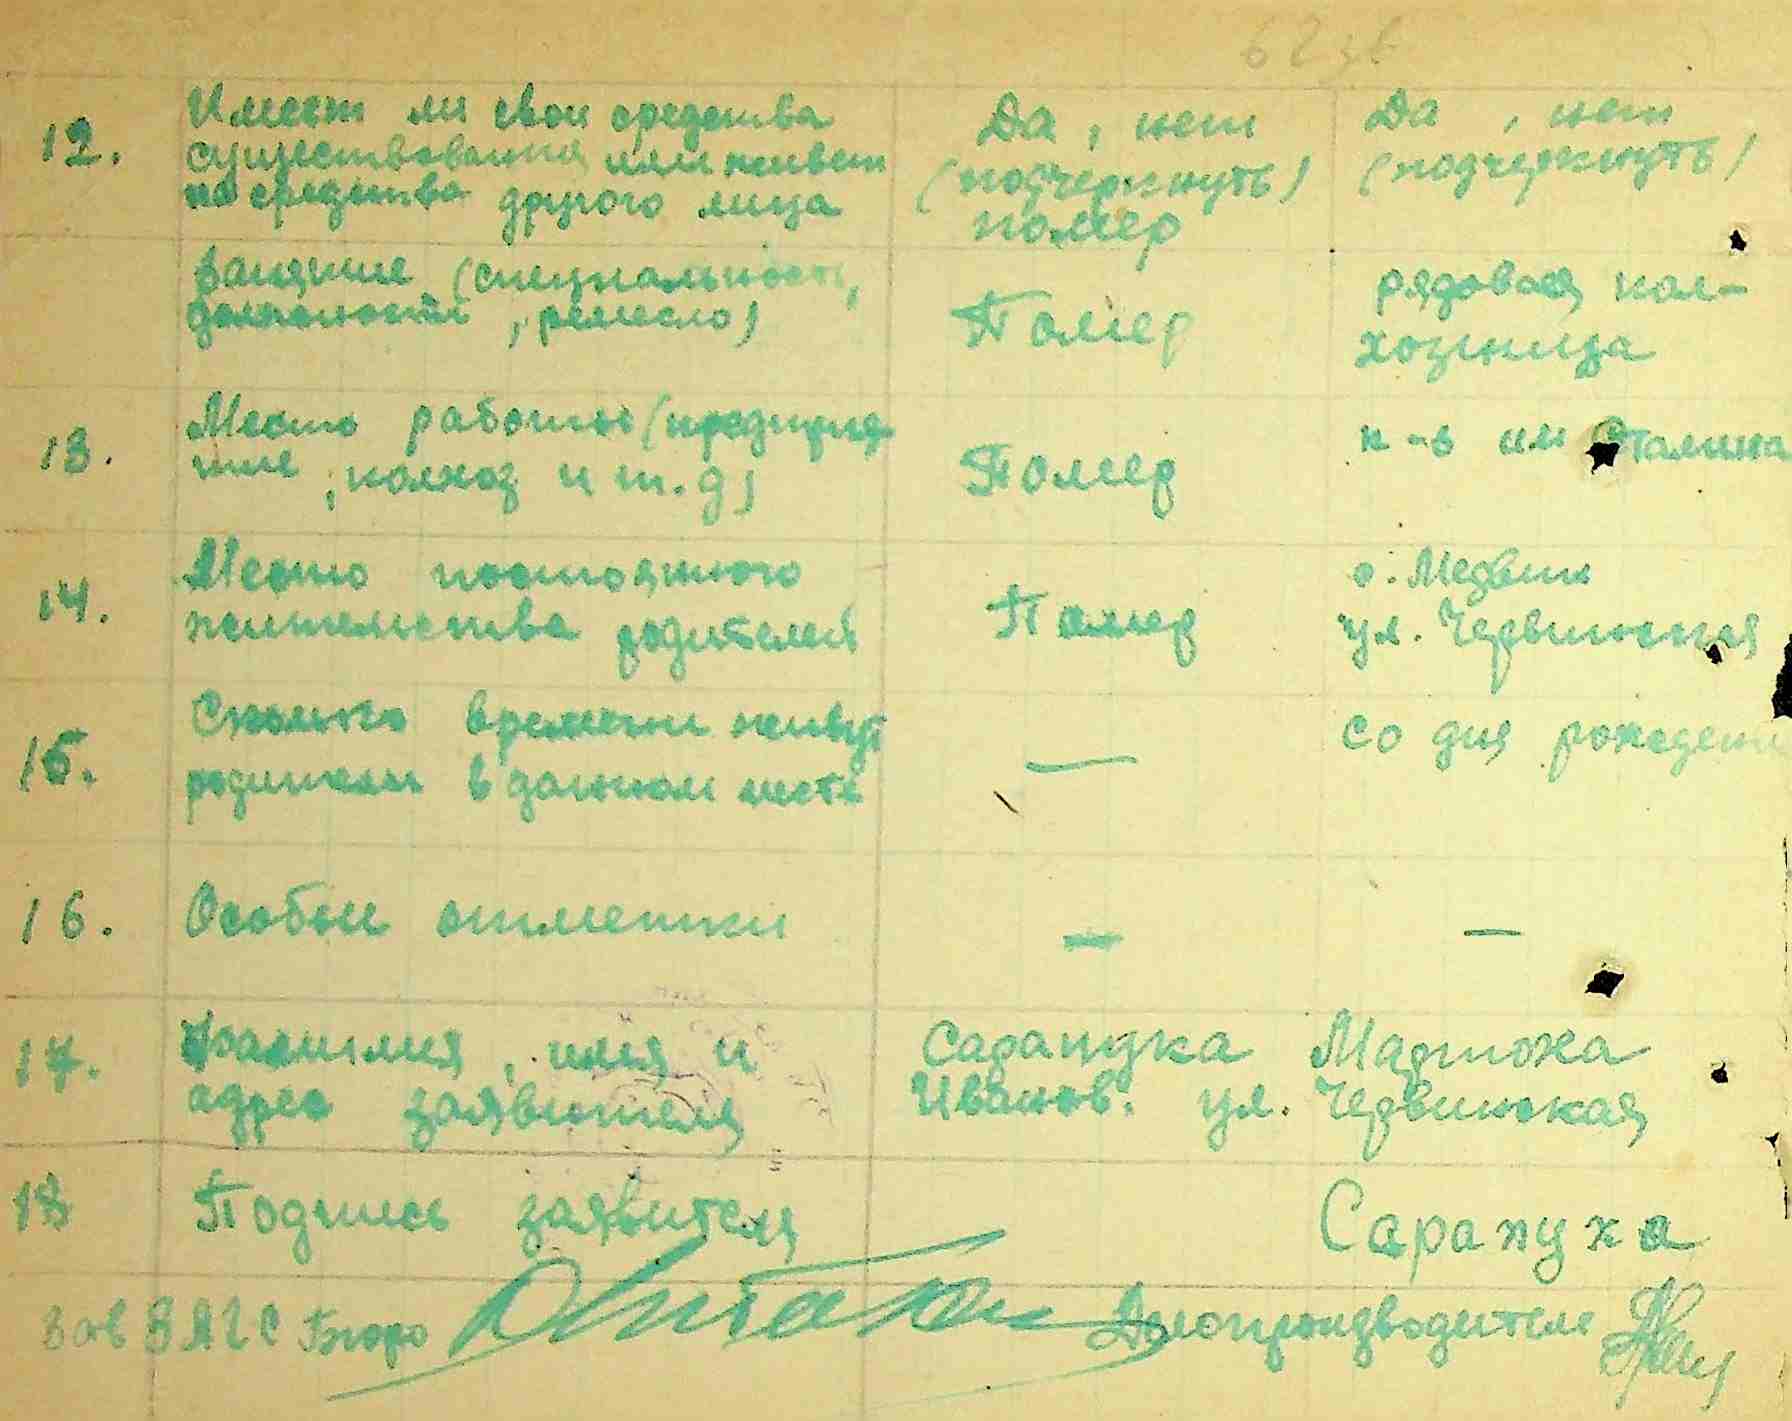 12.
Имеет ли свои средства
существования или живет
на средства другого лица
Да, нет
(подчеркнуть)
помер
Да, нет
(подчеркнуть)
Занятие (специальность,
должность, ремесло)
Помер
рядовая кол-
хозница
13.
Место работы (предприя
тие, колхоз и т.д)
Помер
к-з им Сталина
14.
Место постоянного
жительства родителей
Помер
с. Медвин
ул. Червинская
15.
Сколько времени живут
родители в данном месте
—
со дня рождени
16.
Особые отметки
—
—
17.
Фамилия, имя и
адрес заявителя
Сарапука Мартоха
Иванов. ул. Червинская
18
Подпись заявителя
Сарапука
Зав ЗАГС Бюро
Делопроизводитель